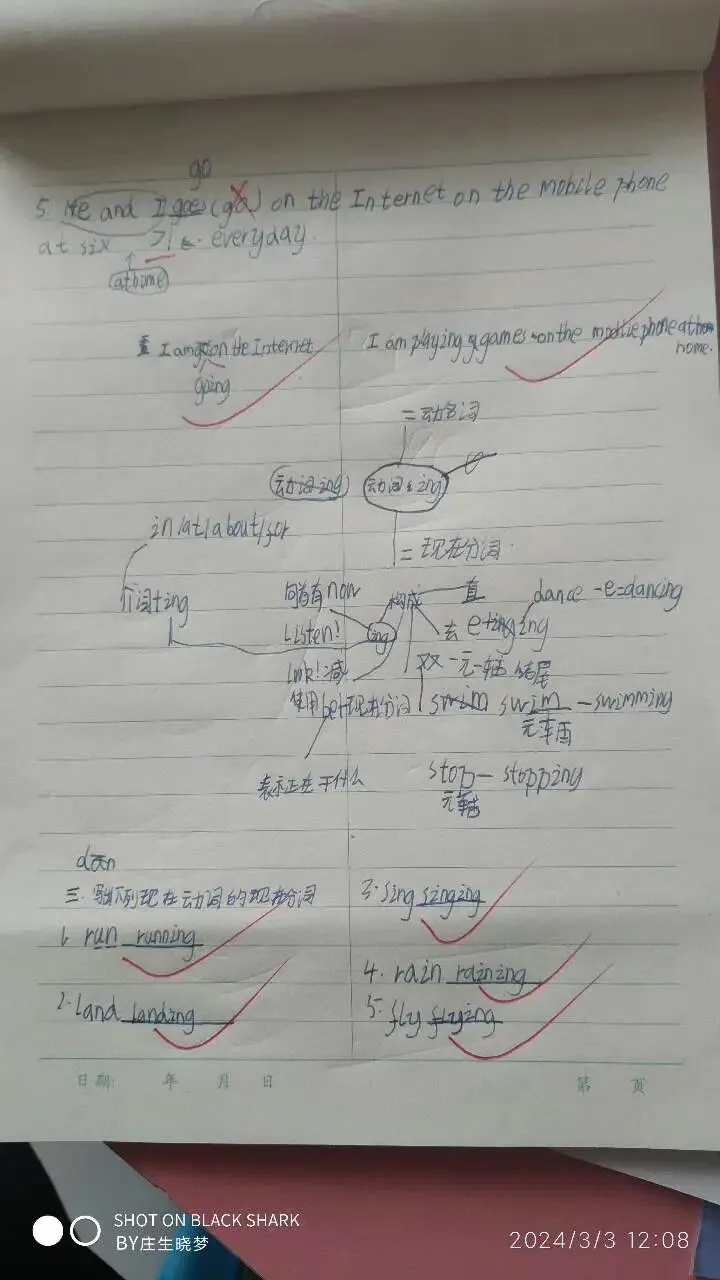 go
5. He and I goes (go) on the Internet on the mobile phone
at six everyday.
>1
at time
I am going on the Internet
I am playing games on the mobile phone at home
home.
= 动名词
动词ing
动词+ing
in/at/about/for
= 现在分词.
介词+ing
句首有now
构成
直
dance -e=dancing
Listen!
ing
去 e+ing
ing
look!
双 一元一辅 结尾
使用be+现在分词
swim swim - swimming
元车甫
表示正在干什么
stop - stopping
元辅
三. 写出下列现在动词的现在分词
1. run running
2. Land landing
3. sing singing
4. rain raining
5. fly flying
日期: 年 月 日
第 页
SHOT ON BLACK SHARK
BY庄生晓梦
2024/3/3 12:08